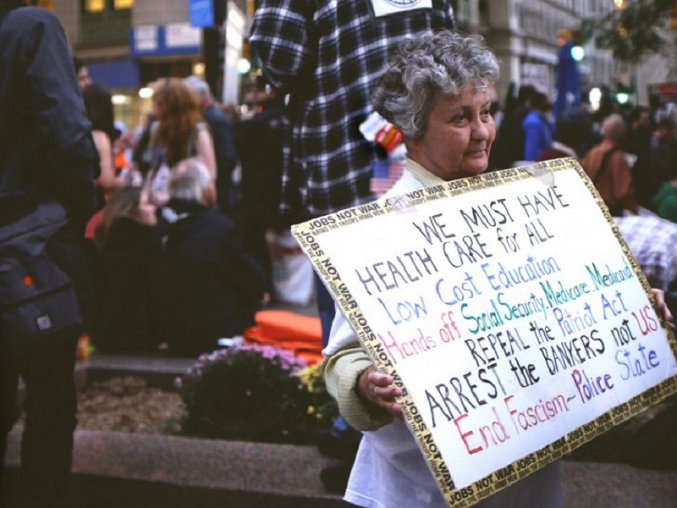 JOBS NOT WAR JOBS NOT WAR JOBS NOT WAR JOBS NOT WAR
WE MUST HAVE
HEALTH CARE for ALL
Low Cost Education
Hands off Social Security, Medicare, Medicaid
REPEAL the Patriot Act
ARREST the BANKERS not US
End Fascism - Police State
JOBS NOT WAR JOBS NOT WAR JOBS NOT WAR